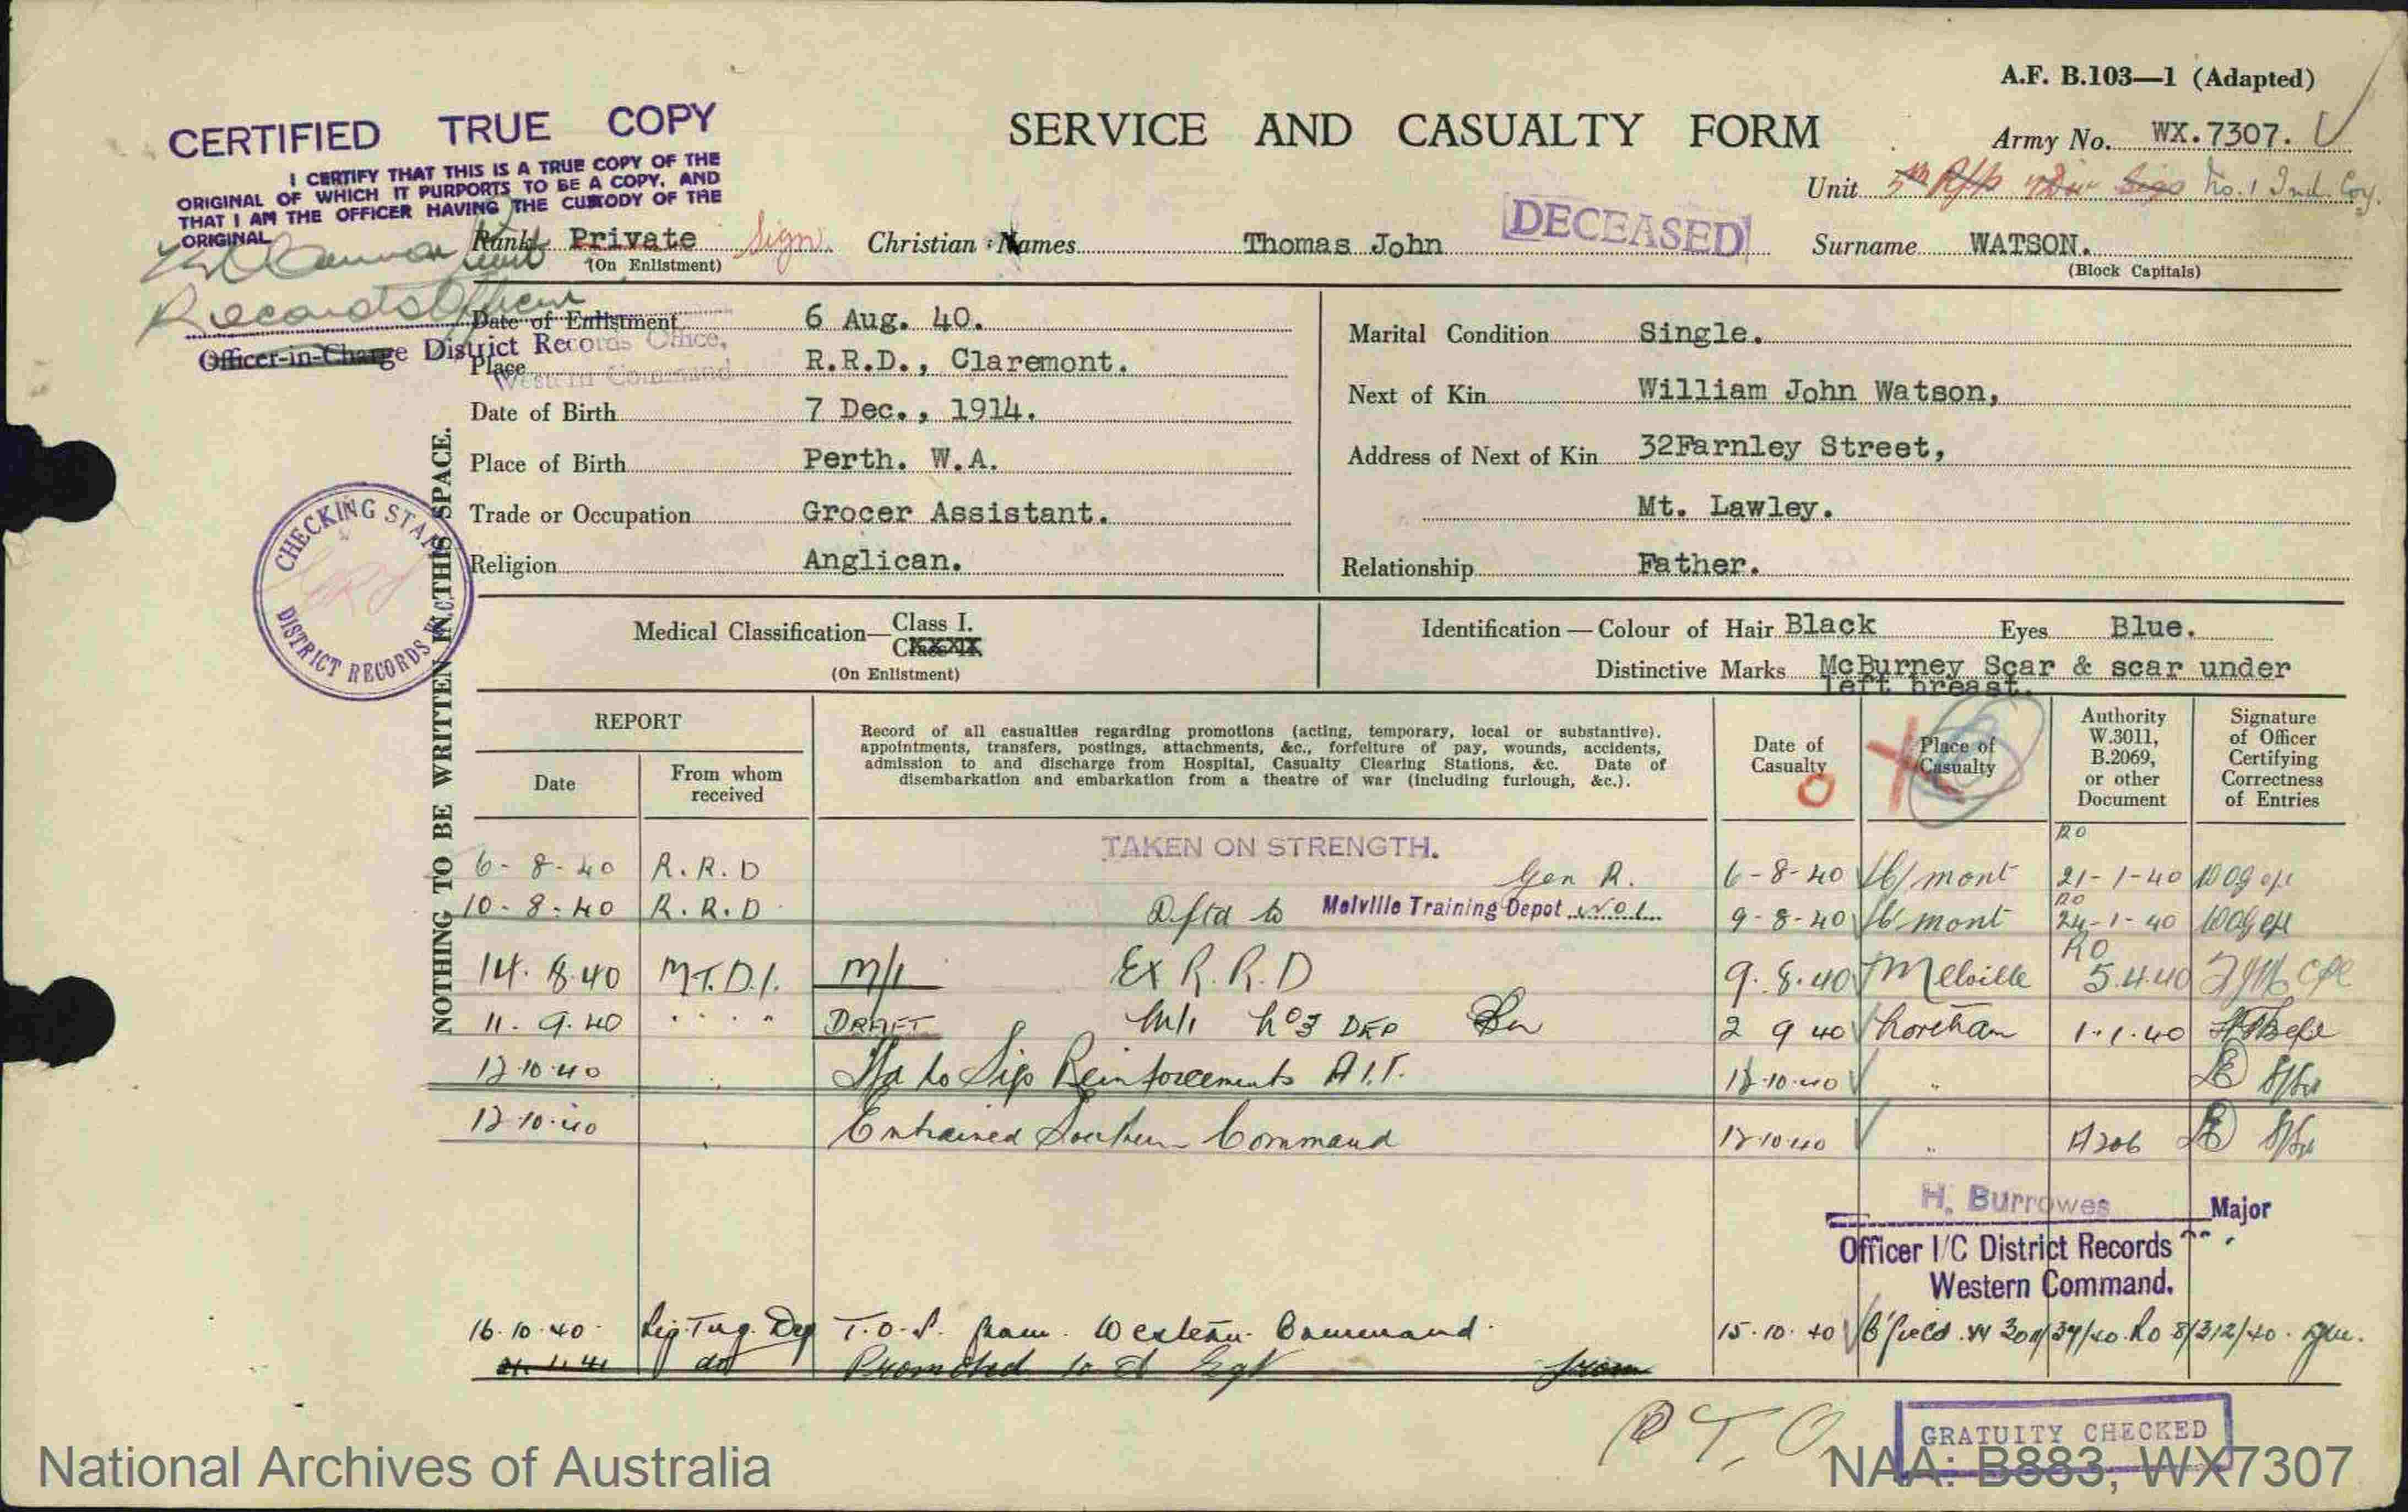 A.F. B.103—1 (Adapted)
CERTIFIED TRUE COPY
I CERTIFY THAT THIS IS A TRUE COPY OF THE
ORIGINAL OF WHICH IT PURPORTS TO BE A COPY, AND
THAT I AM THE OFFICER HAVING THE CUSTODY OF THE
ORIGINAL
Records Officer
Officer-in-Charge District Records Office,
Western Command
SERVICE AND CASUALTY FORM
Army No. WX.7307.
Unit 5th Rfts 7 Div Sigs No. 1 Ind. Coy.
Rank Private Sign Christian Names Thomas John DECEASED Surname WATSON.
(On Enlistment) (Block Capitals)
Date of Enlistment 6 Aug. 40.
Place R.R.D., Claremont.
Date of Birth 7 Dec., 1914.
Place of Birth Perth. W.A.
Trade or Occupation Grocer Assistant.
Religion Anglican.
Marital Condition Single.
Next of Kin William John Watson,
Address of Next of Kin 32Farnley Street,
Mt. Lawley.
Relationship Father.
CHECKING STAFF
DISTRICT RECORDS
NOTHING TO BE WRITTEN IN THIS SPACE.
Medical Classification— Class I.
(On Enlistment)
Identification—Colour of Hair Black Eyes Blue.
Distinctive Marks McBurney Scar & scar under
left breast.
REPORT
Date
From whom received
Record of all casualties regarding promotions (acting, temporary, local or substantive).
appointments, transfers, postings, attachments, &c., forfeiture of pay, wounds, accidents,
admission to and discharge from Hospital, Casualty Clearing Stations, &c. Date of
disembarkation and embarkation from a theatre of war (including furlough, &c.).
Date of Casualty
Place of Casualty
Authority W.3011, B.2069, or other Document
Signature of Officer Certifying Correctness of Entries
TAKEN ON STRENGTH.
6-8-40 R.R.D Gen R. 6-8-40 C/mont RO 21-1-40
10-8-40 R.R.D Dftd to Melville Training Depot No 1 9-8-40 C/mont RO 24-1-40
14.8.40 M.T.D.1. M/I Ex R.R.D 9.8.40 Melville RO 5.4.40
11.9.40 " DRAFT M/I No 3 DEP 2 9 40 Northam 1.1.40
12.10.40 " Tfd to Sigs Reinforcements A.I.F. 12.10.40 "
12.10.40 " Entrained Southern Command 12.10.40 " A206
H. Burrowes Major
Officer I/C District Records
Western Command.
16.10.40 Sig. Tng. Dep T.O.S. from Western Command 15.10.40 B'field W 3011/34/40 Ro 8/312/40
do Promoted to A/Sgt
P T O
GRATUITY CHECKED
National Archives of Australia
NAA: B883, WX7307